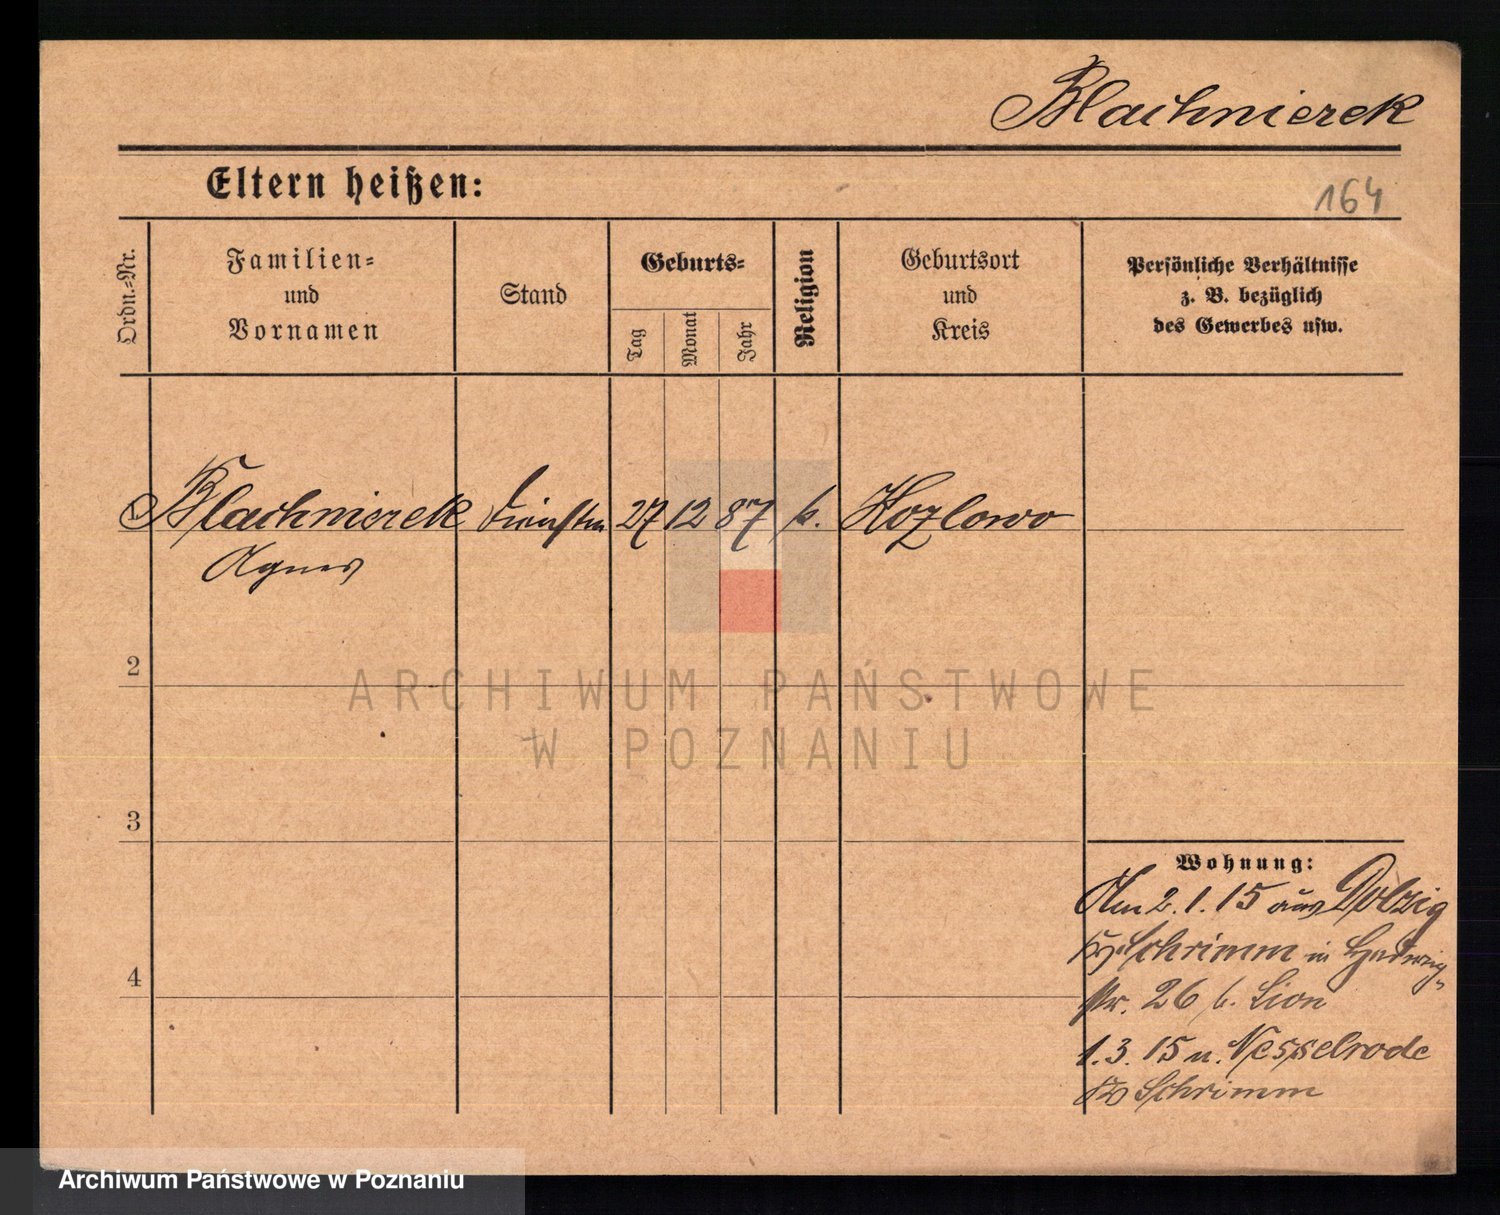 Blachnierek
Eltern heißen:
164
Ordn.-Nr.
Familien-
und
Vornamen
Stand
Geburts-
Tag
Monat
Jahr
Religion
Geburtsort
und
Kreis
Persönliche Verhältnisse
z. B. bezüglich
des Gewerbes usw.
1 Blachnierek 27 12 87 k. Kozlowo
Agnes
2
ARCHIWUM PAŃSTWOWE
W POZNANIU
3
Wohnung:
Am 2.1.15 aus Dolzig
Schrimm in Hedwig-
str. 26 b. Lion
4
1.3.15 n. Nesselrode
Schrimm
Archiwum Państwowe w Poznaniu